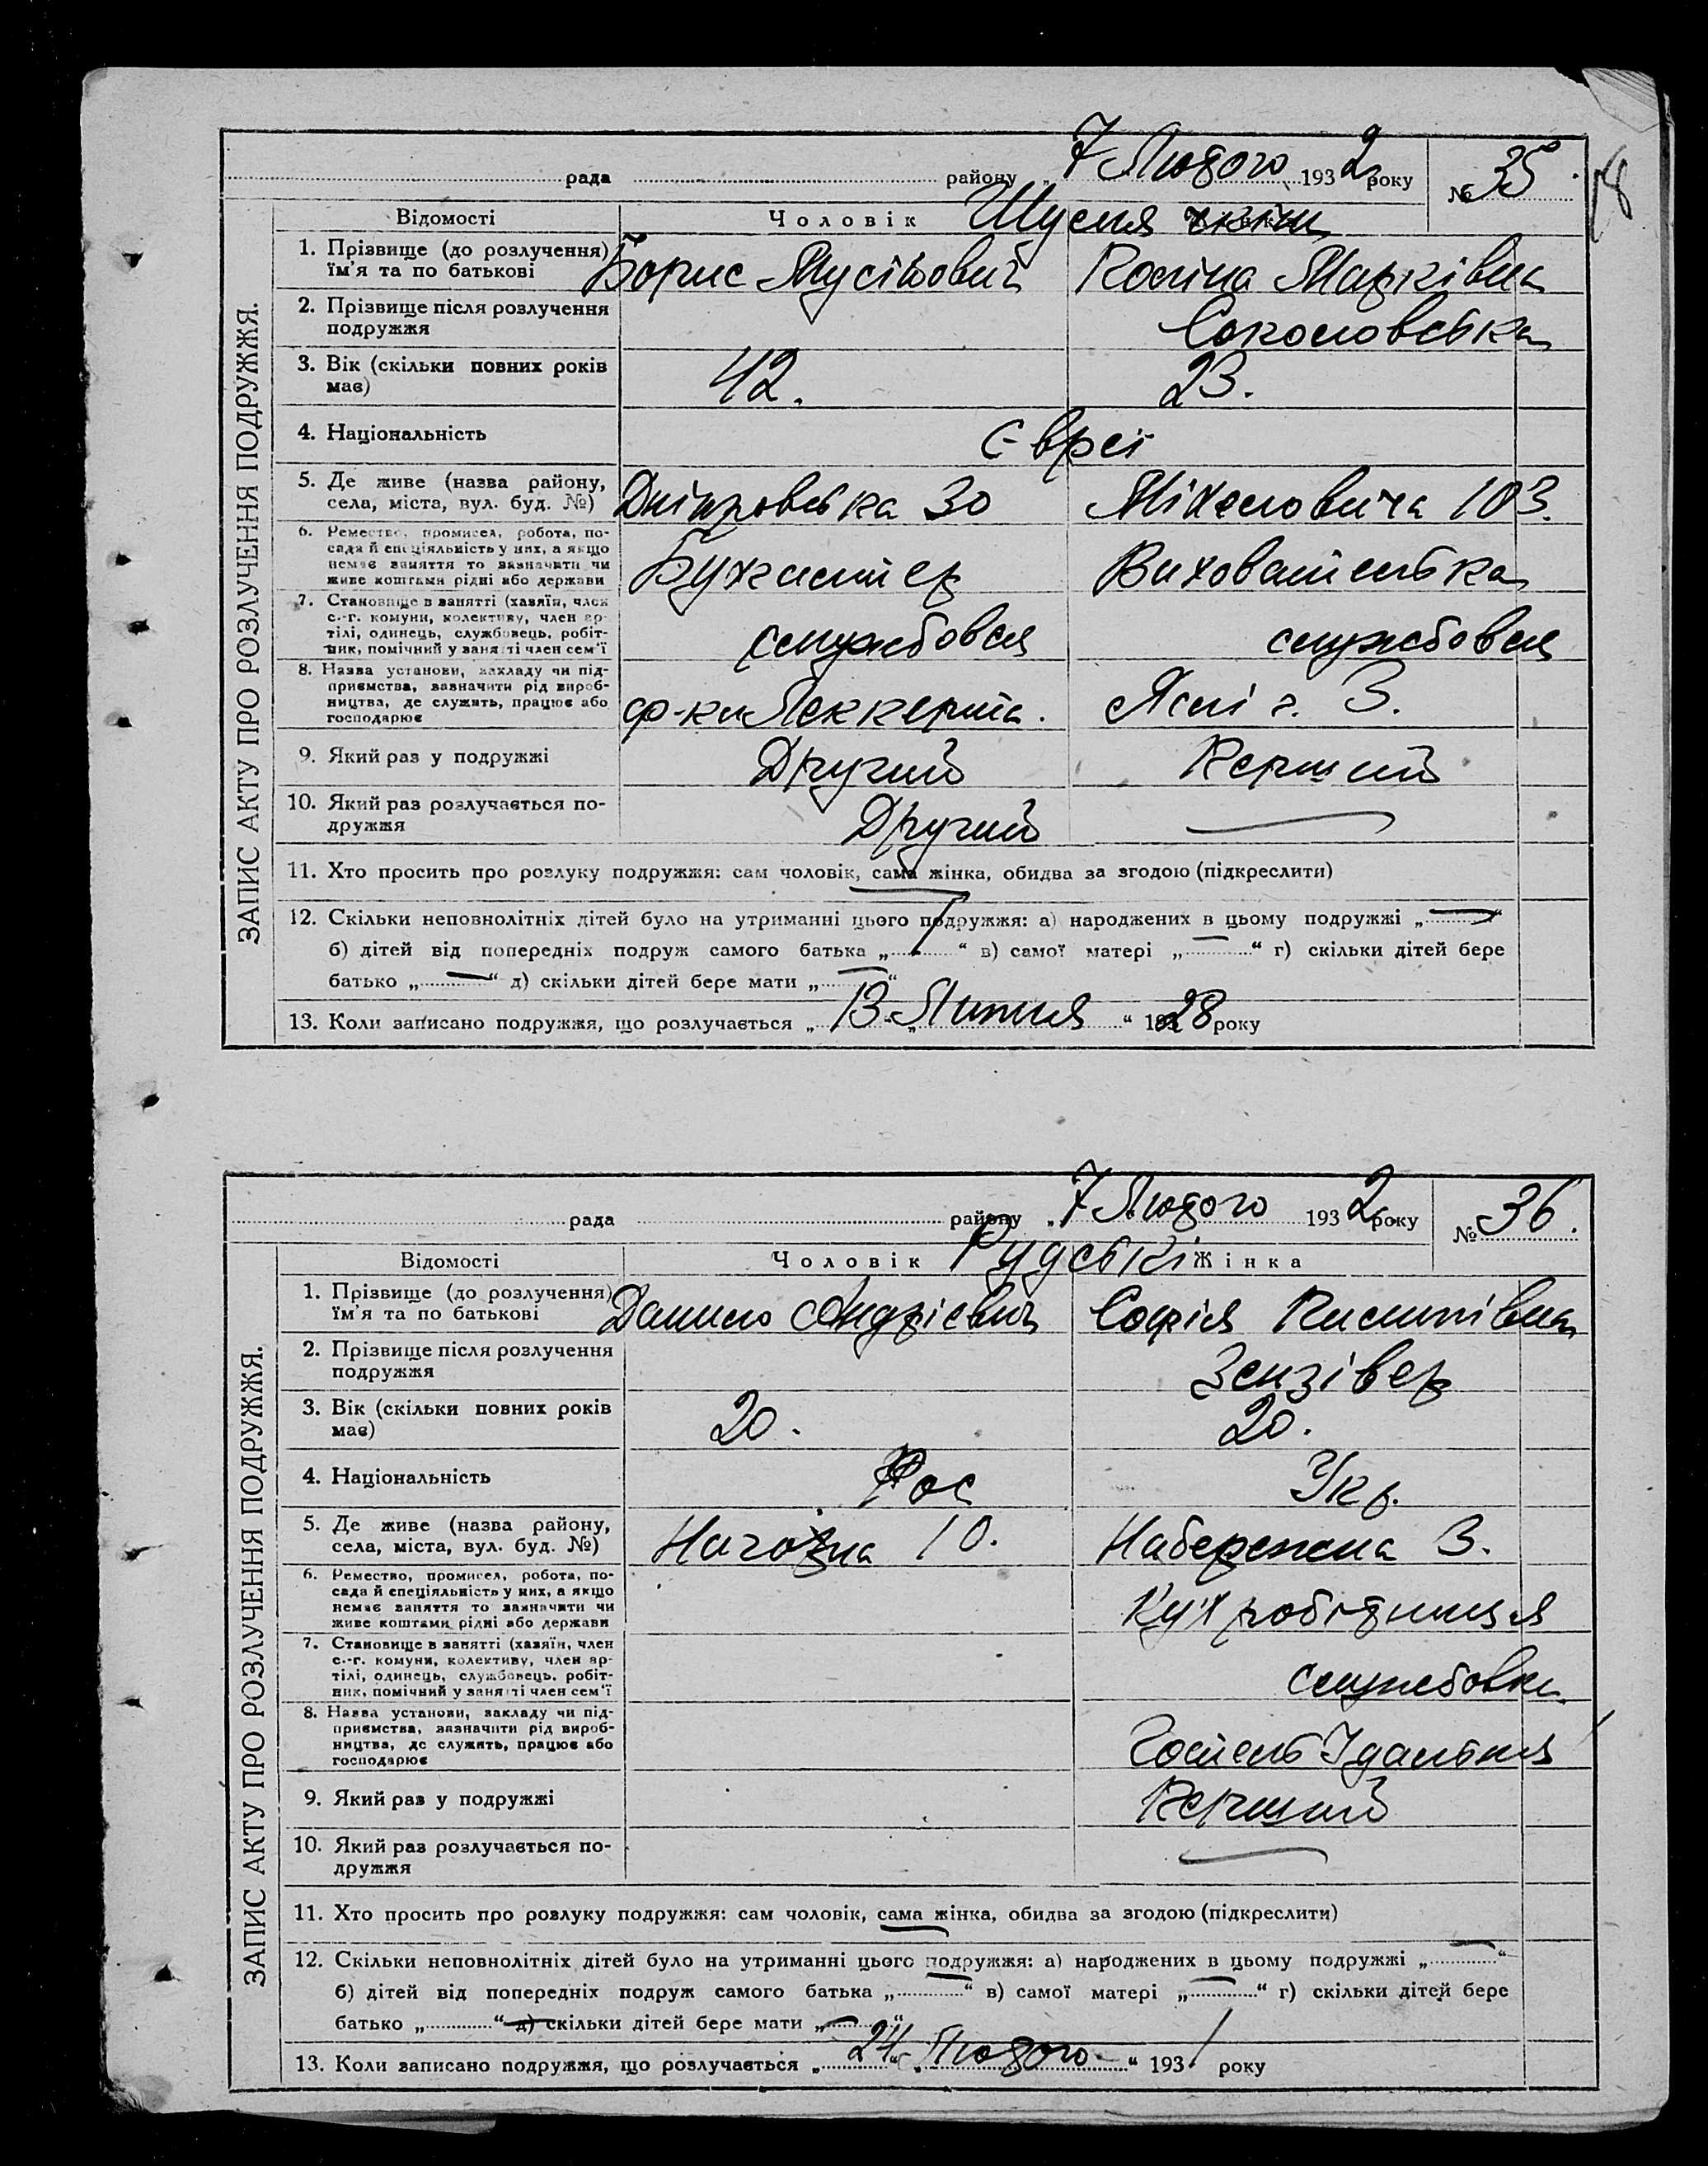 рада району „ 7 Лютого 1932 року № 35.
Відомості Чоловік Жінка
1. Прізвище (до розлучення) їм'я та по батькові Борис Мусійович Поліна Марківна
2. Прізвище після розлучення подружжя Соколовська
3. Вік (скільки повних років має) 42. 23.
4. Національність Євреї
5. Де живе (назва району, села, міста, вул. буд. №) Дніпровська 30 Міхеловича 103.
6. Ремество, промисел, робота, посада й спеціяльність у них, а якщо немає заняття то зазначити чи живе коштами рідні або держави Бухгалтер Вихователька
7. Становище в занятті (хазяїн, член с.-г. комуни, колективу, член артілі, одинець, службовець, робітник, помічний у занятті член сем'ї службовця службовця
8. Назва установи, закладу чи підприємства, зазначити рід виробництва, де служить, працює або господарює ф-ки Леккерта. Яслі г. 3.
9. Який раз у подружжі Другий Перший
10. Який раз розлучається подружжя Другий
11. Хто просить про розлуку подружжя: сам чоловік, сама жінка, обидва за згодою (підкреслити)
12. Скільки неповнолітніх дітей було на утриманні цього подружжя: а) народжених в цьому подружжі „ — “
б) дітей від попередніх подруж самого батька „ “ в) самої матері „ “ г) скільки дітей бере
батько „ — “ д) скільки дітей бере мати „ “
13. Коли записано подружжя, що розлучається „ 13 „ Липня “ 1928 року
ЗАПИС АКТУ ПРО РОЗЛУЧЕННЯ ПОДРУЖЖЯ.
рада району „ 7 Лютого 1932 року № 36.
Відомості Чоловік Рудські Жінка
1. Прізвище (до розлучення) їм'я та по батькові Данило Андрієвич Софія Пилипівна
2. Прізвище після розлучення подружжя Зензівер
3. Вік (скільки повних років має) 20. 20.
4. Національність Рос Укр.
5. Де живе (назва району, села, міста, вул. буд. №) Нагозна 10. Набережна 3.
6. Ремество, промисел, робота, посада й спеціяльність у них, а якщо немає заняття то зазначити чи живе коштами рідні або держави Кух робітниця
7. Становище в занятті (хазяїн, член с.-г. комуни, колективу, член артілі, одинець, службовець, робітник, помічний у занятті член сем'ї службовка
8. Назва установи, закладу чи підприємства, зазначити рід виробництва, де служить, працює або господарює Їдальня
9. Який раз у подружжі Перший
10. Який раз розлучається подружжя
11. Хто просить про розлуку подружжя: сам чоловік, сама жінка, обидва за згодою (підкреслити)
12. Скільки неповнолітніх дітей було на утриманні цього подружжя: а) народжених в цьому подружжі „ “
б) дітей від попередніх подруж самого батька „ “ в) самої матері „ “ г) скільки дітей бере
батько „ “ д) скільки дітей бере мати „ “
13. Коли записано подружжя, що розлучається „ 24 „ Лютого “ 1931 року
ЗАПИС АКТУ ПРО РОЗЛУЧЕННЯ ПОДРУЖЖЯ.